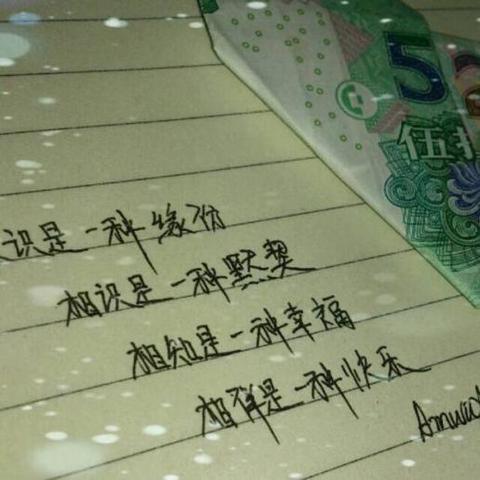 5
伍拾
识是一种缘份
相识是一种默契
相知是一种幸福
相伴是一种快乐